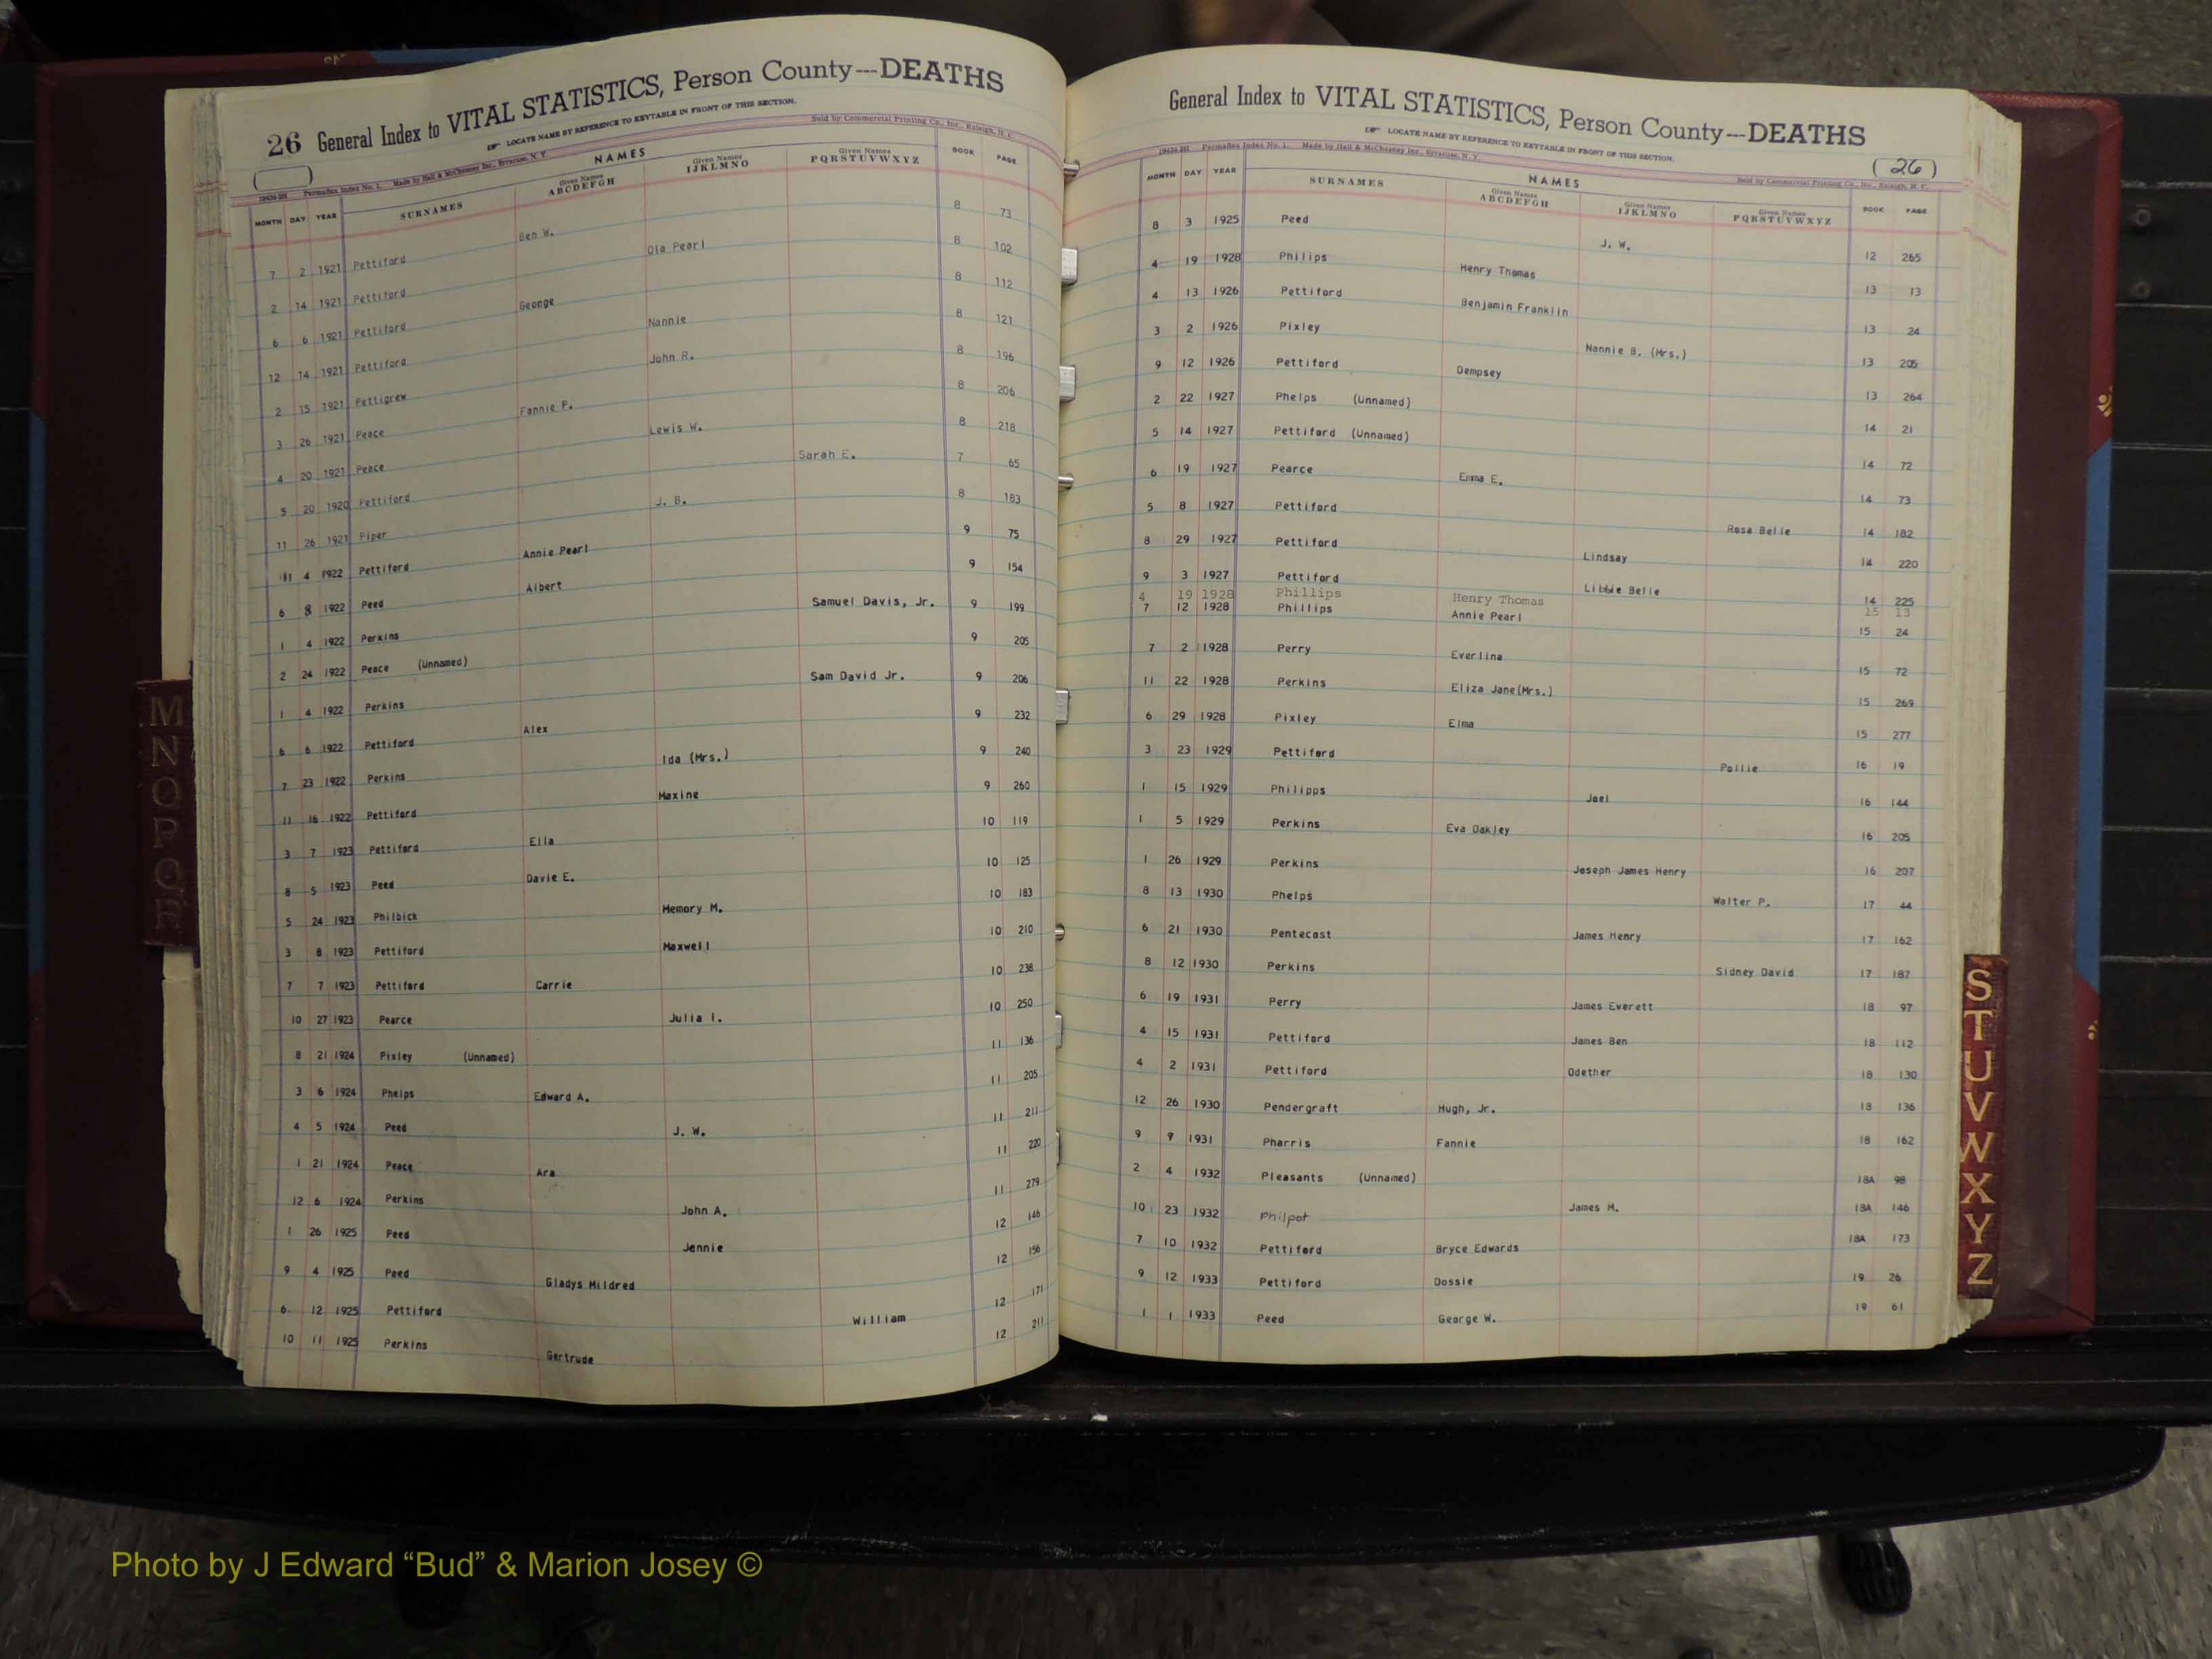 26 General Index to VITAL STATISTICS, Person County---DEATHS
☞ LOCATE NAME BY REFERENCE TO KEYTABLE IN FRONT OF THIS SECTION.
Permaflex Index No. 1. Made by Hall & McChesney Inc., Syracuse, N. Y. Sold by Commercial Printing Co., Inc., Raleigh, N. C.
NAMES
MONTH DAY YEAR SURNAMES Given Names ABCDEFGH Given Names IJKLMNO Given Names PQRSTUVWXYZ BOOK PAGE
7 2 1921 Pettiford Ben W. 8 73
2 14 1921 Pettiford Ola Pearl 8 102
6 6 1921 Pettiford George 8 112
12 14 1921 Pettiford Nannie 8 121
2 15 1921 Pettigrew John R. 8 196
3 26 1921 Peace Fannie P. 8 206
4 20 1921 Peace Lewis W. 8 218
5 20 1920 Pettiford Sarah E. 7 65
11 26 1921 Piper J. B. 8 183
11 4 1922 Pettiford Annie Pearl 9 75
6 8 1922 Peed Albert 9 154
1 4 1922 Perkins Samuel Davis, Jr. 9 199
2 24 1922 Peace (Unnamed) 9 205
1 4 1922 Perkins Sam David Jr. 9 206
6 6 1922 Pettiford Alex 9 232
7 23 1922 Perkins Ida (Mrs.) 9 240
11 16 1922 Pettiford Maxine 9 260
3 7 1923 Pettiford Ella 10 119
8 5 1923 Peed Davie E. 10 125
5 24 1923 Philbick Memory M. 10 183
3 8 1923 Pettiford Maxwell 10 210
7 7 1923 Pettiford Carrie 10 238
10 27 1923 Pearce Julia I. 10 250
8 21 1924 Pixley (Unnamed) 11 136
3 6 1924 Phelps Edward A. 11 205
4 5 1924 Peed J. W. 11 211
1 21 1924 Peace Ara 11 220
12 6 1924 Perkins John A. 11 279
1 26 1925 Peed Jennie 12 146
9 4 1925 Peed Gladys Mildred 12 156
6 12 1925 Pettiford William 12 171
10 11 1925 Perkins Gertrude 12 211
General Index to VITAL STATISTICS, Person County---DEATHS
☞ LOCATE NAME BY REFERENCE TO KEYTABLE IN FRONT OF THIS SECTION.
(26)
Permaflex Index No. 1. Made by Hall & McChesney Inc., Syracuse, N. Y. Sold by Commercial Printing Co., Inc., Raleigh, N. C.
NAMES
MONTH DAY YEAR SURNAMES Given Names ABCDEFGH Given Names IJKLMNO Given Names PQRSTUVWXYZ BOOK PAGE
8 3 1925 Peed J. W. 12 265
4 19 1928 Philips Henry Thomas 13 13
4 13 1926 Pettiford Benjamin Franklin 13 24
3 2 1926 Pixley Nannie B. (Mrs.) 13 205
9 12 1926 Pettiford Dempsey 13 264
2 22 1927 Phelps (Unnamed) 14 21
5 14 1927 Pettiford (Unnamed) 14 72
6 19 1927 Pearce Emma E. 14 73
5 8 1927 Pettiford Rosa Belle 14 182
8 29 1927 Pettiford Lindsay 14 220
9 3 1927 Pettiford Libbie Belle 14 225
4 19 1928 Phillips Henry Thomas 15 13
7 12 1928 Phillips Annie Pearl 15 24
7 2 1928 Perry Everlina 15 72
11 22 1928 Perkins Eliza Jane(Mrs.) 15 269
6 29 1928 Pixley Elma 15 277
3 23 1929 Pettiford Pollie 16 19
1 15 1929 Philipps Joel 16 144
1 5 1929 Perkins Eva Oakley 16 205
1 26 1929 Perkins Joseph James Henry 16 207
8 13 1930 Phelps Walter P. 17 44
6 21 1930 Pentecost James Henry 17 162
8 12 1930 Perkins Sidney David 17 187
6 19 1931 Perry James Everett 18 97
4 15 1931 Pettiford James Ben 18 112
4 2 1931 Pettiford Odether 18 130
12 26 1930 Pendergraft Hugh, Jr. 18 136
9 9 1931 Pharris Fannie 18 162
2 4 1932 Pleasants (Unnamed) 18A 98
10 23 1932 Philpot James M. 18A 146
7 10 1932 Pettiford Bryce Edwards 18A 173
9 12 1933 Pettiford Dossie 19 26
1 1 1933 Peed George W. 19 61
M
N
O
P
Q
R
S
T
U
V
W
X
Y
Z
Photo by J Edward “Bud” & Marion Josey ©